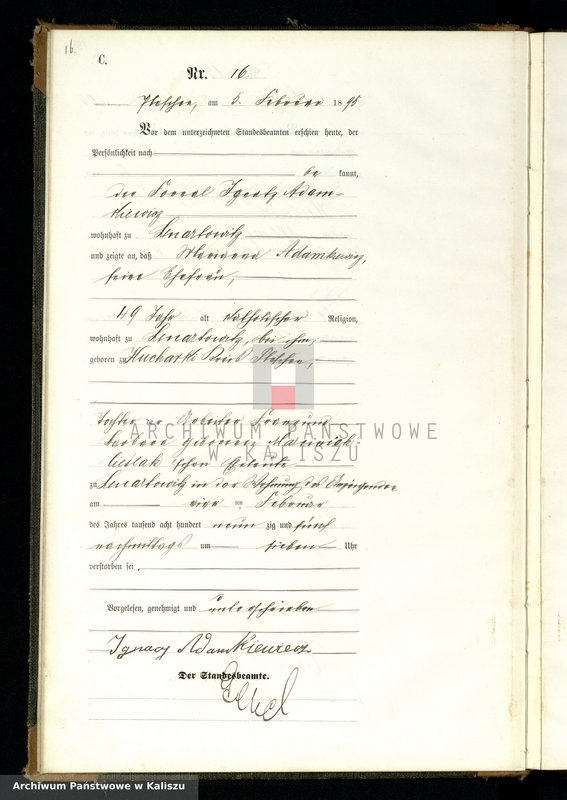 16.
C.
Nr. 16
Pleschen, am 5. Februar 1895
Vor dem unterzeichneten Standesbeamten erschien heute, der
Persönlichkeit nach
be kannt,
der Ignatz Adam-
kiewicz
wohnhaft zu Lenartowitz
und zeigte an, daß Marianna Adamkiewicz,
seine Ehefrau,
49 Jahr alt katholischer Religion,
wohnhaft zu Lenartowitz, bei ihm,
geboren zu Kucharki Kreis Pleschen,
Tochter der Arbeiter Franz und
Barbara geborenen Marciniak-
Cieślak'schen Eheleute
zu Lenartowitz in der Wohnung des Anzeigenden
am vier ten Februar
des Jahres tausend acht hundert neun zig und fünf
nachmittags um sieben Uhr
verstorben sei.
Vorgelesen, genehmigt und unterschrieben
Ignacy Adamkiewicz
Der Standesbeamte.
ARCHIWUM PAŃSTWOWE
W KALISZU
Archiwum Państwowe w Kaliszu